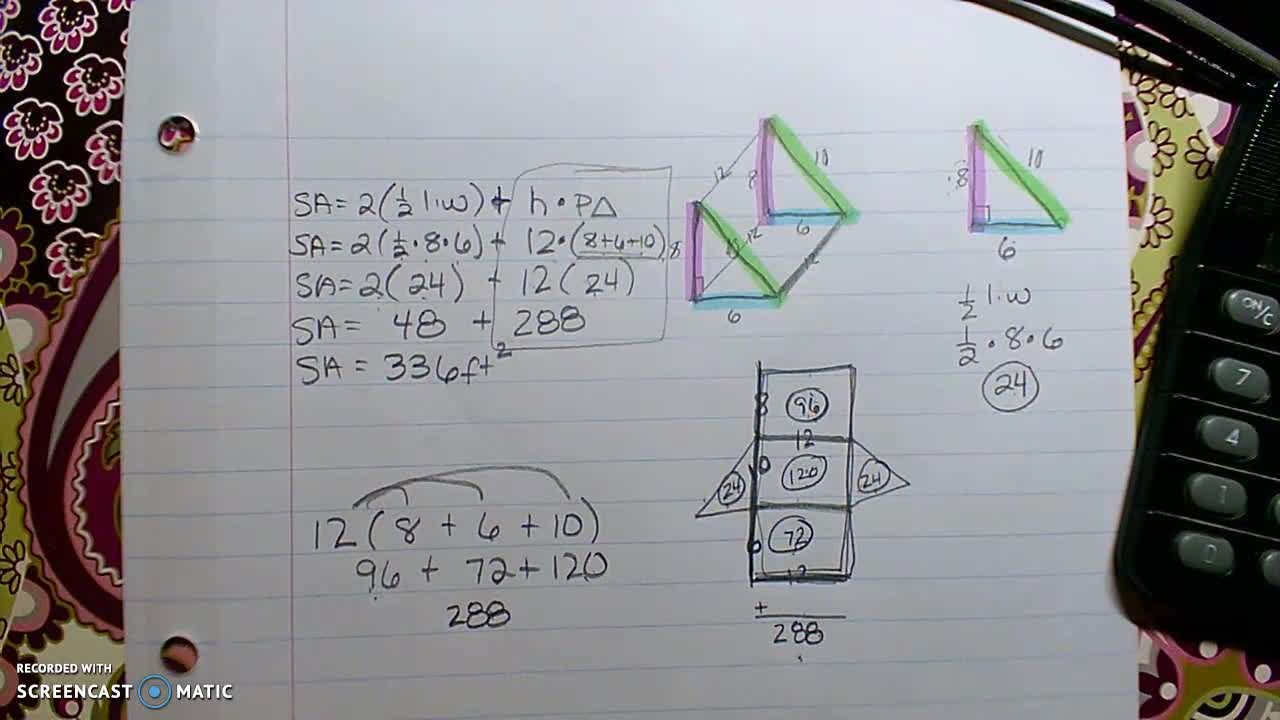 SA = 2(½ l·w) + h · P△
SA = 2(½·8·6) + 12·(8+6+10)
SA = 2(24) + 12(24)
SA = 48 + 288
SA = 336 ft²
12(8 + 6 + 10)
96 + 72 + 120
288
12
8
10
6
12
8
10
12
12
6
8
10
6
½ l·w
½ · 8 · 6
24
8
96
12
24
10
120
24
6
72
12
+
288
ON/C
7
4
1
0
RECORDED WITH
SCREENCAST MATIC